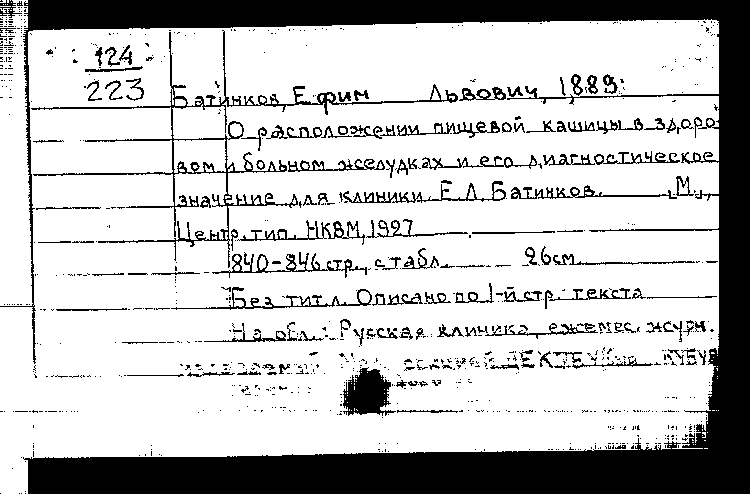 124
223
Батинков, Ефим Львович, 1889:
О расположении пищевой кашицы в здоро
вом и больном желудках и его диагностическое
значение для клиники. Е.Л. Батинков. М.,
Центр. тип. НКВМ, 1927
840-846 стр., с табл. 26 см
Без тит. л. Описано по 1-й стр. текста
На обл.: Русская клиника, ежемес. журн.
издаваемый